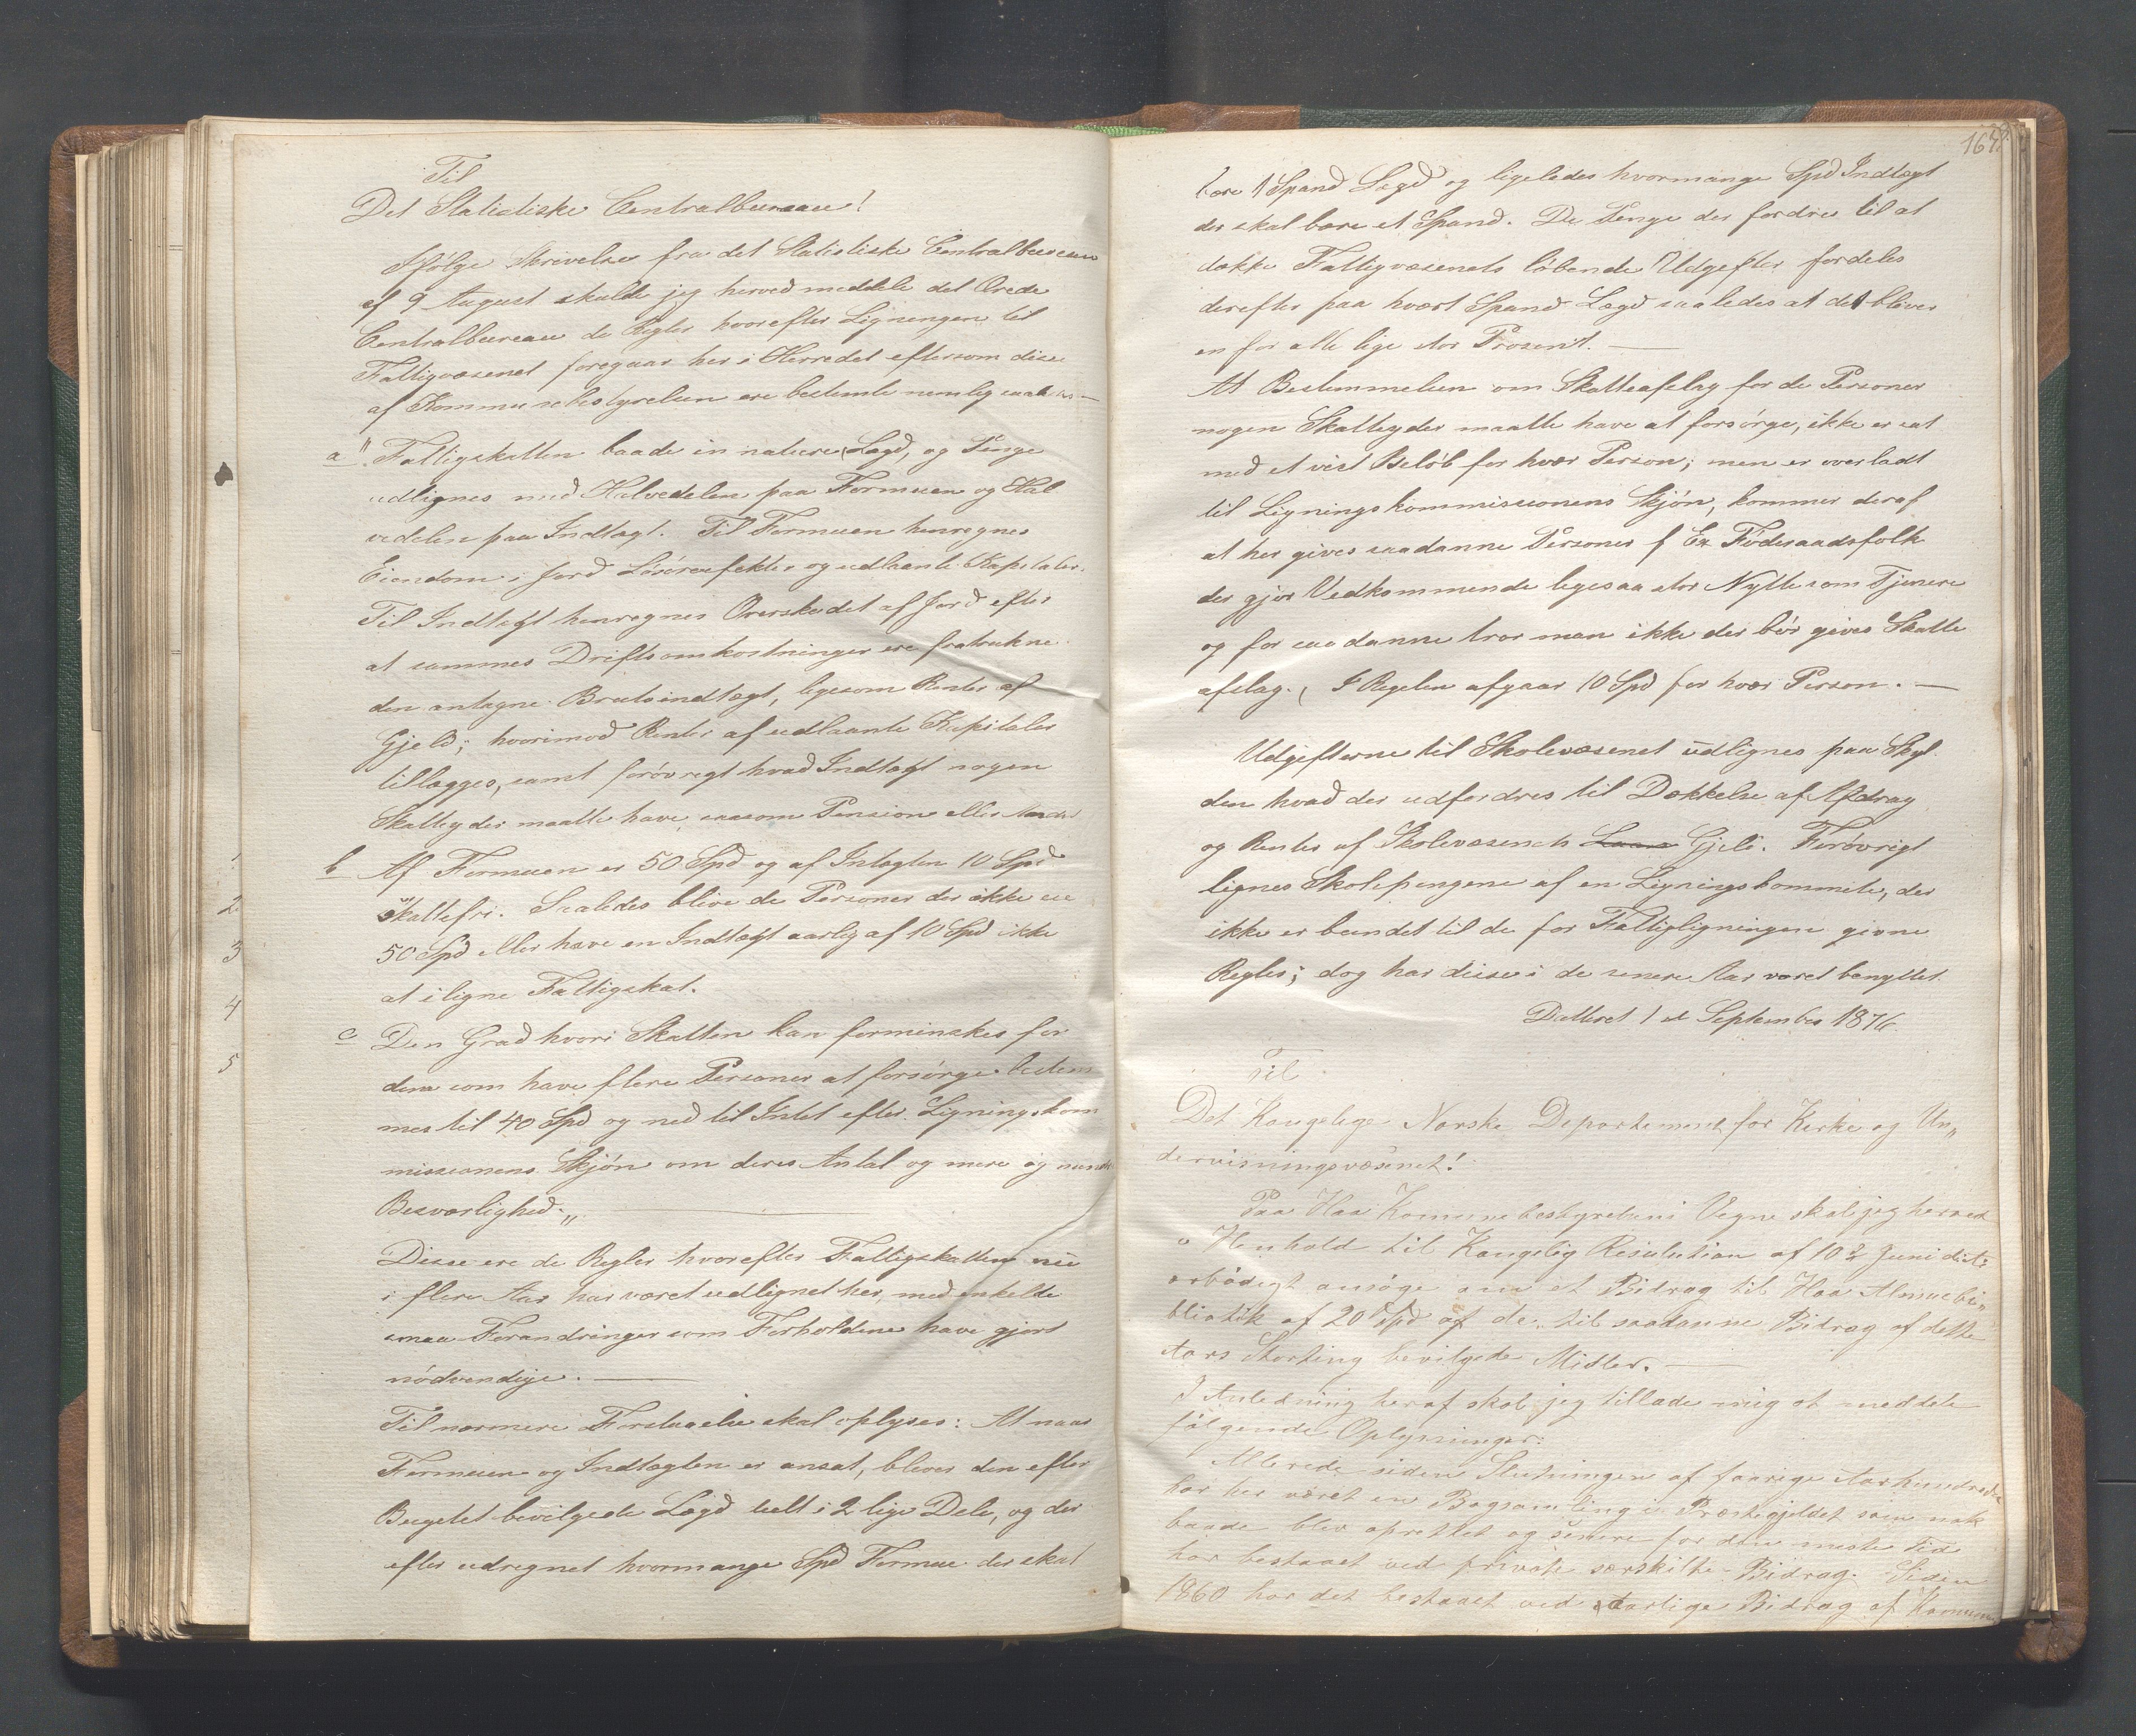 Til
Det Statistiske Centralbureau!
Ifølge Skrivelse fra det Statistiske Centralbureau
af 9 August skulde jeg herved meddele det Ærede
Centralbureau de Regler hvorefter Ligningen til
Fattigvæsenet foregaar her i Herredet eftersom disse
af Kommunebestyrelsen ere bestemte nemlig saaledes
a „Fattigskatten baade in natura (Lægd, og Penge
udlignes med Halvedelen paa Formuen og Hal
vedelen paa Indtægt. Til Formuen henregnes
Eiendom i Jord Løsøreefekter og udlaante Kapitaler.
Til Indtægt henregnes Overskudet af Jord efter
at sammes Driftsomkostninger ere fratrukne
den antagne Brutoindtægt, ligesom Renter af
Gjeld; hvorimod Renter af udlaante Kapitaler
tillægges, samt forøvrigt hvad Indtægt nogen
Skatteyder maatte have saasom Pension eller Andet
b Af Formuen er 50 Spd og af Intægten 10 Spd
skattefri. Saaledes blive de Personer der ikke eie
50 Spd eller have en Indtægt aarlig af 10 Spd ikke
at iligne Fattigskat.
c Den Grad hvori Skatten kan forminskes for
dem som have flere Personer at forsørge bestem
mes til 40 Spd og ned til Intet efter Ligningskom
missionens Skjøn om deres Antal og mere og mindre
Besværlighed.„
Disse ere de Regler hvorefter Fattigskatten nu
i flere Aar har været udlignet her, med enkelte
smaa Forandringer som Forholdene have gjort
nødvendige.
Til nærmere Forstaaelse skal oplyses: At naar
Formuen og Indtægten er ansat, bliver den efter
Bugetet bevilgede Lægd delt i 2 lige Dele, og der
efter udregnet hvormange Spd Formue der skal
1
2
3
4
5
167.
bære 1 Spand Lægd og ligeledes hvormange Spd Indtægt
der skal bære et Spand. De Penge der fordres til at
dække Fattigvæsenets løbende Udgifter fordeles
derefter paa hvert Spand Lægd saaledes at det bliver
en for alle lige stor Prosent.
At Bestemmelsen om Skatteafslag for de Personer
nogen Skatteyder maatte have at forsørge, ikke er sat
med et vist Beløb for hver Person; men er overladt
til Ligningskommissionens Skjøn, kommer deraf
at her gives saadanne Personer f Ex Føderaadsfolk
der gjør Vedkommende ligesaa stor Nytte som Tjenere
og for saadanne tror man ikke der bør gives Skatte
afslag. I Regelen afgaar 10 Spd for hver Person.
Udgifterne til Skolevæsenet udlignes paa Skyl
den hvad der udfordres til Dækkelse af Afdrag
og Renter af Skolevæsenets Laan Gjeld. Forøvrigt
lignes Skolepengene af en Ligningskommite, der
ikke er bundet til de for Fattigligningen givne
Regler; dog har disse i de senere Aar været benyttet.
Datteret 1 st September 1876
Til
Det Kongelige Norske Departement for Kirke og Un„
dervisningsvæsenet!
Paa Haa Kommunebestyrelsens Vegne skal jeg herved
i Henhold til Kongelig Resolution af 10de Juni dette
ærbødigst ansøge om et Bidrag til Haa Almuebi„
bliotik af 20 Spd af de til saadanne Bidrag af dette
Aars Storting bevilgede Midler.
I Anledning heraf skal jeg tillade mig at meddele
følgende Oplysninger:
Allerede siden Slutningen af forrige Aarhundrede
har her været en Bogsamling i Præstegjeldet som nok
baade blev oprettet og senere for den meste Tid
har bestaaet ved private særskilte Bidrag. Siden
1860 har det bestaaet ved aarlige Bidrag af Kommunen